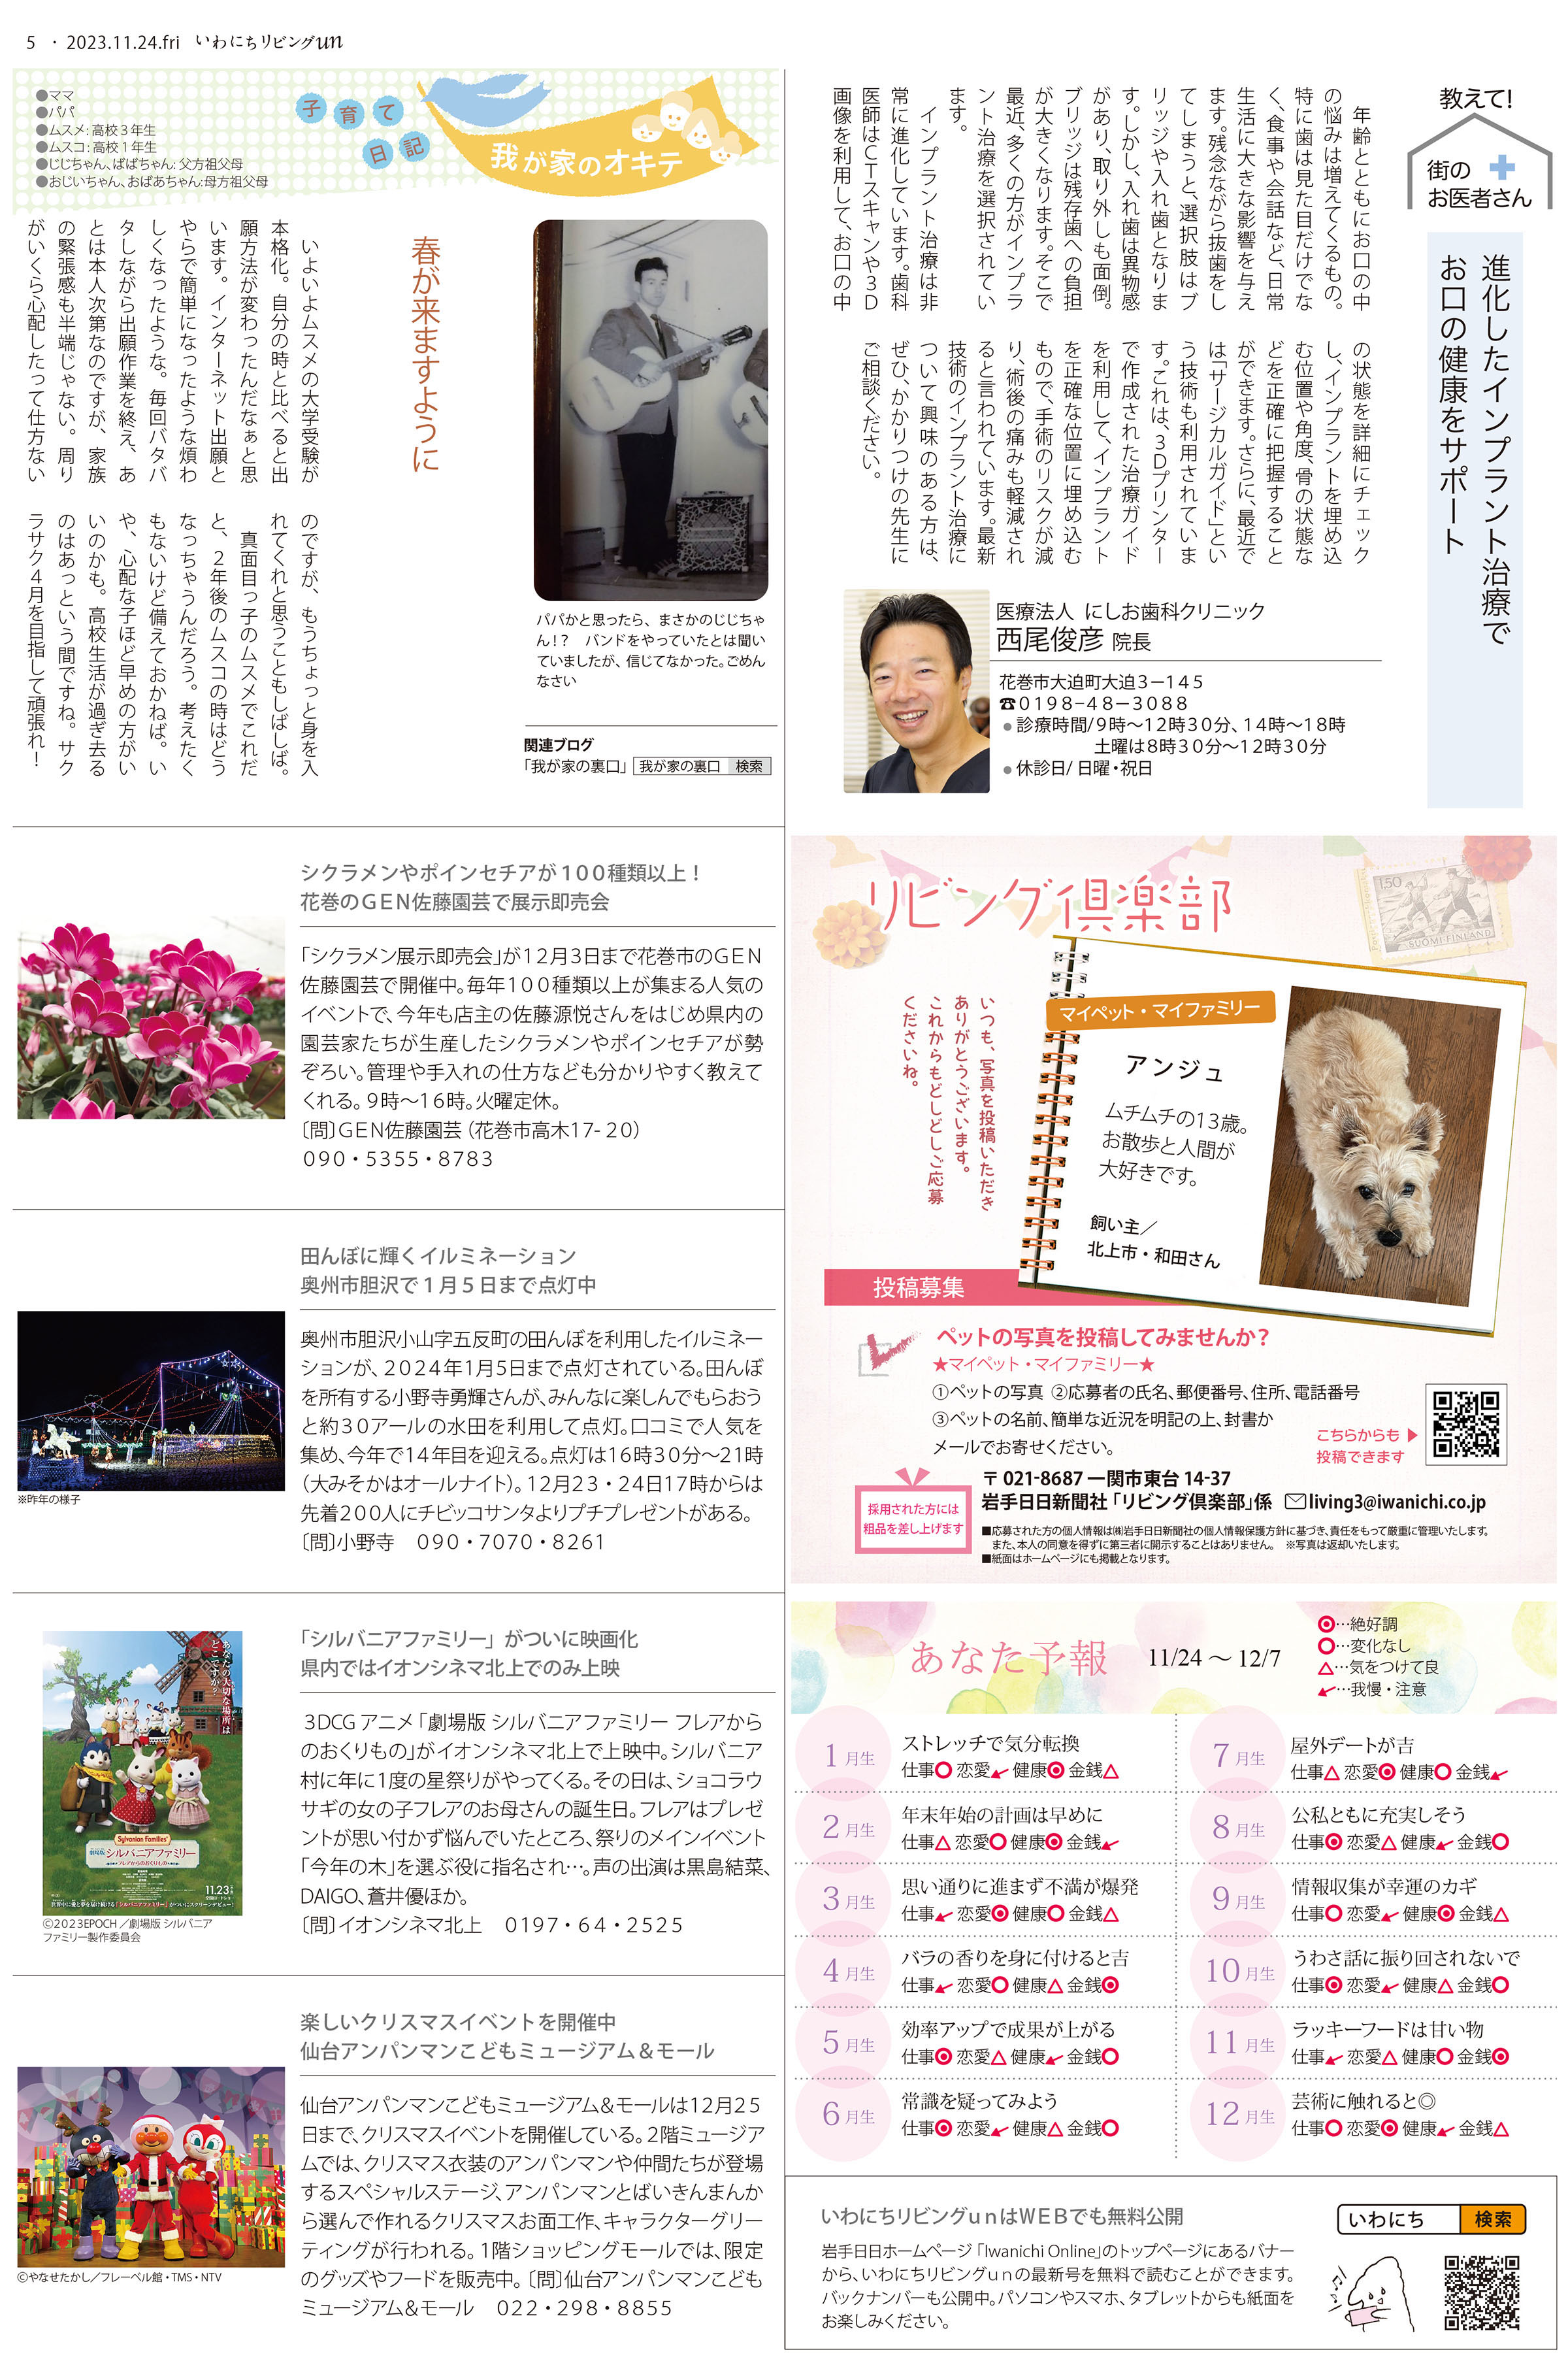 5 ・ 2023.11.24.fri いわにちリビングun
教えて!
街の
お医者さん
進化したインプラント治療で
お口の健康をサポート
年齢とともにお口の中
の悩みは増えてくるもの。
特に歯は見た目だけでな
く、食事や会話など、日常
生活に大きな影響を与え
ます。残念ながら抜歯をし
てしまうと、選択肢はブ
リッジや入れ歯となりま
す。しかし、入れ歯は異物感
があり、取り外しも面倒。
ブリッジは残存歯への負担
が大きくなります。そこで
最近、多くの方がインプラ
ント治療を選択されてい
ます。
インプラント治療は非
常に進化しています。歯科
医師はCTスキャンや3D
画像を利用して、お口の中
の状態を詳細にチェック
し、インプラントを埋め込
む位置や角度、骨の状態な
どを正確に把握すること
ができます。さらに、最近で
は「サージカルガイド」とい
う技術も利用されていま
す。これは、3Dプリンター
で作成された治療ガイド
を利用して、インプラント
を正確な位置に埋め込む
もので、手術のリスクが減
り、術後の痛みも軽減され
ると言われています。最新
技術のインプラント治療に
ついて興味のある方は、
ぜひ、かかりつけの先生に
ご相談ください。
医療法人 にしお歯科クリニック
西尾俊彦 院長
花巻市大迫町大迫3−145
☎0198−48−3088
●診療時間/9時〜12時30分、14時〜18時
土曜は8時30分〜12時30分
●休診日/日曜・祝日
●ママ
●パパ
●ムスメ:高校3年生
●ムスコ:高校1年生
●じじちゃん、ばばちゃん:父方祖父母
●おじいちゃん、おばあちゃん:母方祖父母
子育て
日記
我が家のオキテ
春が来ますように
いよいよムスメの大学受験が
本格化。自分の時と比べると出
願方法が変わったんだなぁと思
います。インターネット出願と
やらで簡単になったような煩わ
しくなったような。毎回バタバ
タしながら出願作業を終え、あ
とは本人次第なのですが、家族
の緊張感も半端じゃない。周り
がいくら心配したって仕方ない
のですが、もうちょっと身を入
れてくれと思うこともしばしば。
真面目っ子のムスメでこれだ
と、2年後のムスコの時はどう
なっちゃうんだろう。考えたく
もないけど備えておかねば。い
や、心配な子ほど早めの方がい
いのかも。高校生活が過ぎ去る
のはあっという間ですね。サク
ラサク4月を目指して頑張れ!
パパかと思ったら、まさかのじじちゃ
ん!? バンドをやっていたとは聞い
ていましたが、信じてなかった。ごめん
なさい
関連ブログ
「我が家の裏口」 我が家の裏口 検索
シクラメンやポインセチアが100種類以上!
花巻のGEN佐藤園芸で展示即売会
「シクラメン展示即売会」が12月3日まで花巻市のGEN
佐藤園芸で開催中。毎年100種類以上が集まる人気の
イベントで、今年も店主の佐藤源悦さんをはじめ県内の
園芸家たちが生産したシクラメンやポインセチアが勢
ぞろい。管理や手入れの仕方なども分かりやすく教えて
くれる。9時〜16時。火曜定休。
〔問〕GEN佐藤園芸(花巻市高木17-20)
090・5355・8783
田んぼに輝くイルミネーション
奥州市胆沢で1月5日まで点灯中
※昨年の様子
奥州市胆沢小山字五反町の田んぼを利用したイルミネー
ションが、2024年1月5日まで点灯されている。田んぼ
を所有する小野寺勇輝さんが、みんなに楽しんでもらおう
と約30アールの水田を利用して点灯。口コミで人気を
集め、今年で14年目を迎える。点灯は16時30分〜21時
(大みそかはオールナイト)。12月23・24日17時からは
先着200人にチビッコサンタよりプチプレゼントがある。
〔問〕小野寺 090・7070・8261
「シルバニアファミリー」がついに映画化
県内ではイオンシネマ北上でのみ上映
あなたの大切な場所は
どこですか?
Sylvanian Families
劇場版
シルバニアファミリー
フレアからのおくりもの
11.23
©2023EPOCH/劇場版 シルバニア
ファミリー製作委員会
3DCGアニメ「劇場版 シルバニアファミリー フレアから
のおくりもの」がイオンシネマ北上で上映中。シルバニア
村に年に1度の星祭りがやってくる。その日は、ショコラウ
サギの女の子フレアのお母さんの誕生日。フレアはプレゼ
ントが思い付かず悩んでいたところ、祭りのメインイベント
「今年の木」を選ぶ役に指名され…。声の出演は黒島結菜、
DAIGO、蒼井優ほか。
〔問〕イオンシネマ北上 0197・64・2525
楽しいクリスマスイベントを開催中
仙台アンパンマンこどもミュージアム&モール
©やなせたかし/フレーベル館・TMS・NTV
仙台アンパンマンこどもミュージアム&モールは12月25
日まで、クリスマスイベントを開催している。2階ミュージア
ムでは、クリスマス衣装のアンパンマンや仲間たちが登場
するスペシャルステージ、アンパンマンとばいきんまんか
ら選んで作れるクリスマスお面工作、キャラクターグリー
ティングが行われる。1階ショッピングモールでは、限定
のグッズやフードを販売中。〔問〕仙台アンパンマンこども
ミュージアム&モール 022・298・8855
リビング倶楽部
150
SUOMI FINLAND
いつも、写真を投稿いただき
ありがとうございます。
これからもどしどしご応募
くださいね。
マイペット・マイファミリー
アンジュ
ムチムチの13歳。
お散歩と人間が
大好きです。
飼い主/
北上市・和田さん
投稿募集
ペットの写真を投稿してみませんか?
★マイペット・マイファミリー★
①ペットの写真 ②応募者の氏名、郵便番号、住所、電話番号
③ペットの名前、簡単な近況を明記の上、封書か
メールでお寄せください。
こちらからも
投稿できます
採用された方には
粗品を差し上げます
〒021-8687 一関市東台14-37
岩手日日新聞社「リビング倶楽部」係 living3@iwanichi.co.jp
■応募された方の個人情報は㈱岩手日日新聞社の個人情報保護方針に基づき、責任をもって厳重に管理いたします。
また、本人の同意を得ずに第三者に開示することはありません。 ※写真は返却いたします。
■紙面はホームページにも掲載となります。
あなた予報 11/24 〜 12/7
◎…絶好調
○…変化なし
△…気をつけて良
↙…我慢・注意
1月生 ストレッチで気分転換
仕事○ 恋愛↙ 健康◎ 金銭△
2月生 年末年始の計画は早めに
仕事△ 恋愛○ 健康◎ 金銭↙
3月生 思い通りに進まず不満が爆発
仕事↙ 恋愛◎ 健康○ 金銭△
4月生 バラの香りを身に付けると吉
仕事↙ 恋愛○ 健康△ 金銭◎
5月生 効率アップで成果が上がる
仕事◎ 恋愛△ 健康↙ 金銭○
6月生 常識を疑ってみよう
仕事◎ 恋愛↙ 健康△ 金銭○
7月生 屋外デートが吉
仕事△ 恋愛◎ 健康○ 金銭↙
8月生 公私ともに充実しそう
仕事◎ 恋愛△ 健康↙ 金銭○
9月生 情報収集が幸運のカギ
仕事○ 恋愛↙ 健康◎ 金銭△
10月生 うわさ話に振り回されないで
仕事◎ 恋愛↙ 健康△ 金銭○
11月生 ラッキーフードは甘い物
仕事↙ 恋愛△ 健康○ 金銭◎
12月生 芸術に触れると◎
仕事○ 恋愛◎ 健康↙ 金銭△
いわにちリビングunはWEBでも無料公開
岩手日日ホームページ「Iwanichi Online」のトップページにあるバナー
から、いわにちリビングunの最新号を無料で読むことができます。
バックナンバーも公開中。パソコンやスマホ、タブレットからも紙面を
お楽しみください。
いわにち 検索